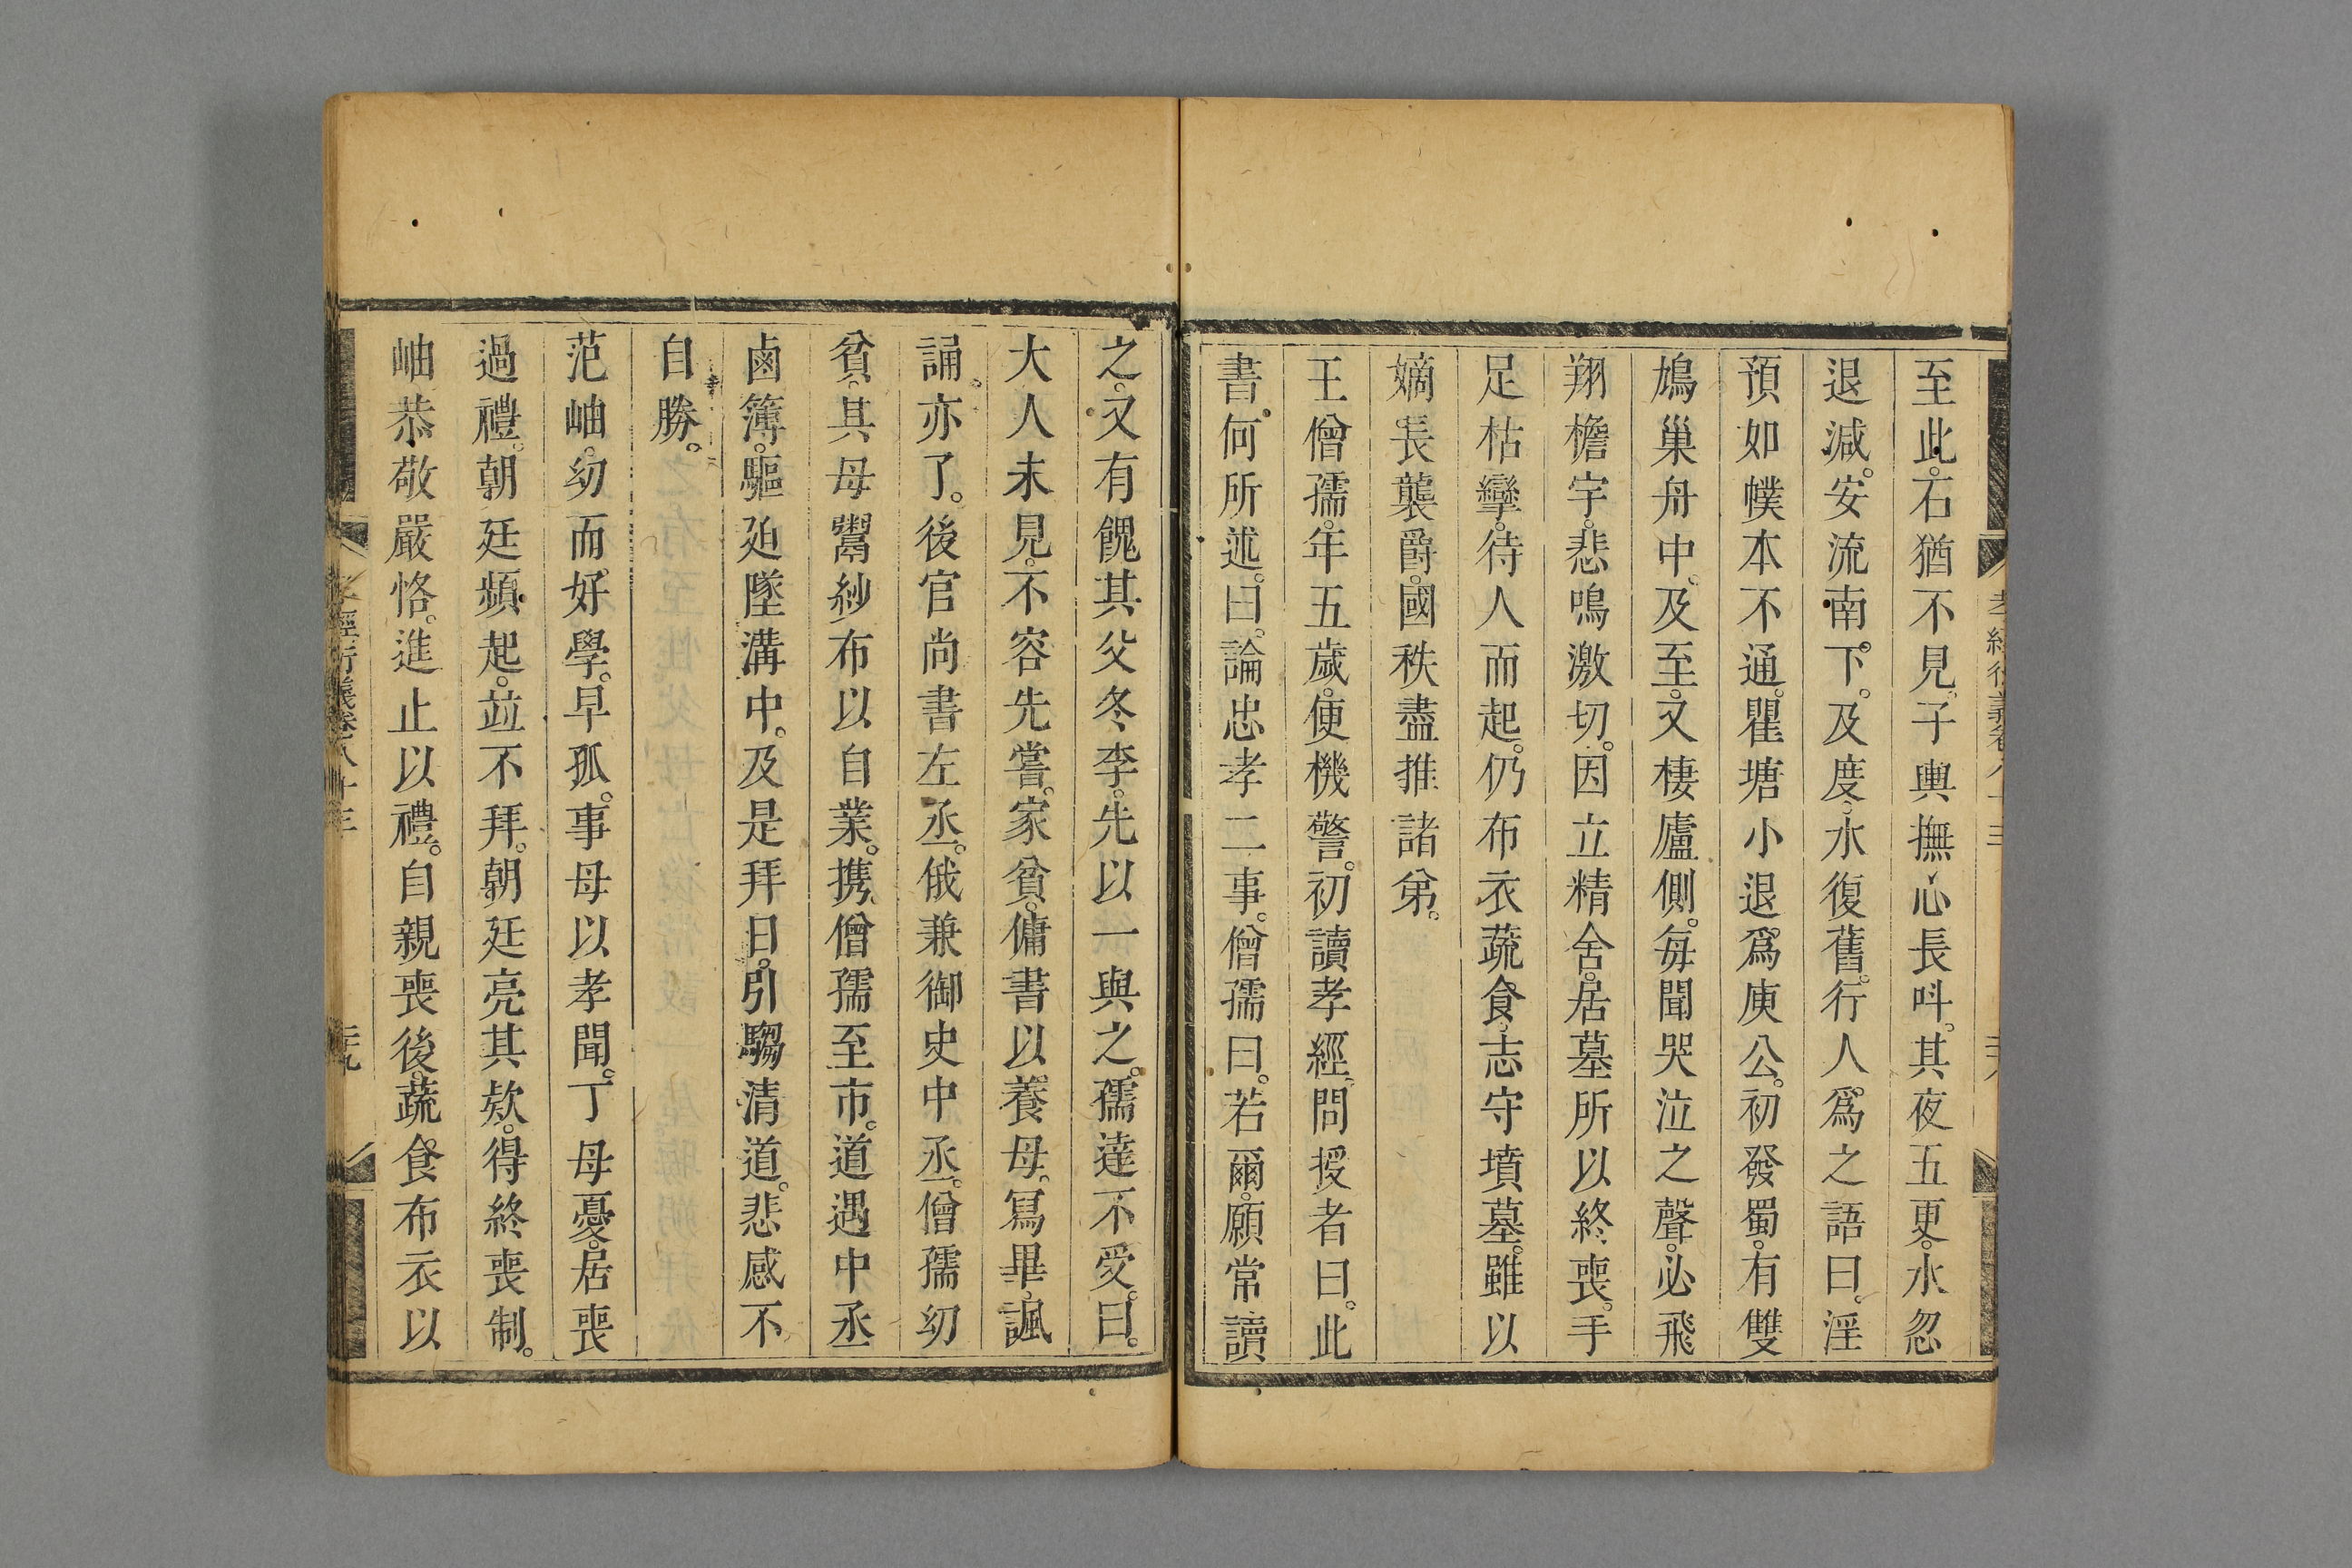 至此。石猶不見。子輿撫心長呌。其夜五更。水忽
退減。安流南下。及度。水復舊。行人為之語曰。淫
預如幞本不通。瞿塘小退為庾公。初發蜀。有雙
鳩巢舟中。及至。又棲廬側。每聞哭泣之聲。必飛
翔檐宇。悲鳴激切。因立精舍。居墓所以終喪。手
足枯攣。待人而起。仍布衣蔬食。志守墳墓。雖以
嫡長襲爵。國秩盡推諸弟。
王僧孺。年五歲。便機警。初讀孝經。問授者曰。此
書何所述。曰。論忠孝二事。僧孺曰。若爾。願常讀
之。又有餽其父冬李。先以一與之。孺達不受。曰。
大人未見。不容先嘗。家貧。傭書以養母。寫畢。諷
誦亦了。後官尚書左丞。俄兼御史中丞。僧孺幼
貧。其母鬻紗布以自業。攜僧孺至市。道遇中丞
鹵簿。驅廹墜溝中。及是拜日。引騶清道。悲感不
自勝。
范岫。幼而好學。早孤。事母以孝聞。丁母憂。居喪
過禮。朝廷頻起。竝不拜。朝廷亮其欵。得終喪制。
岫恭敬嚴恪。進止以禮。自親喪後。蔬食布衣以
孝經衍義卷八十三
三九